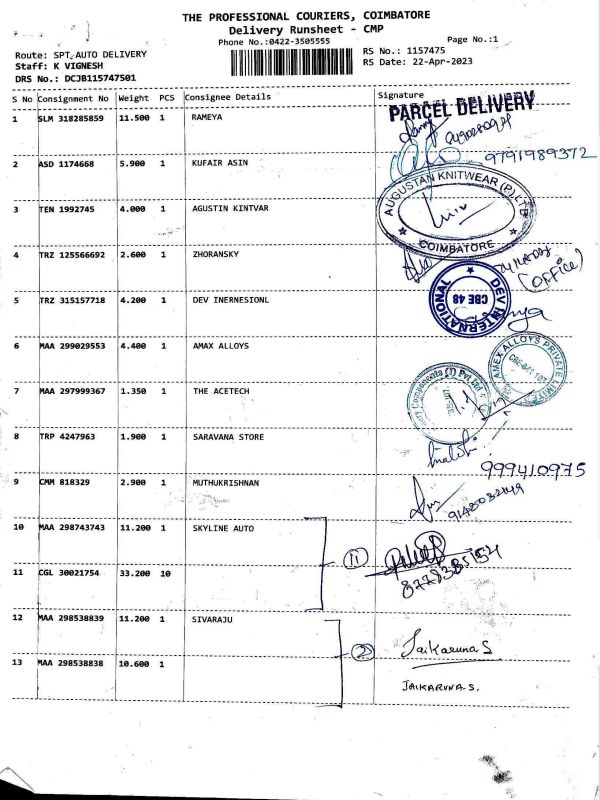 THE PROFESSIONAL COURIERS, COIMBATORE
Delivery Runsheet - CMP
Phone No.:0422-3505555 Page No.:1
Route: SPT AUTO DELIVERY RS No.: 1157475
Staff: K VIGNESH RS Date: 22-Apr-2023
DRS No.: DCJB115747501
S No Consignment No Weight PCS Consignee Details Signature
PARCEL DELIVERY
1 SLM 318285859 11.500 1 RAMEYA
2 ASD 1174668 5.900 1 KUFAIR ASIN 9791989372
AUGUSTAN KNITWEAR (P) LTD
3 TEN 1992745 4.000 1 AGUSTIN KINTVAR
COIMBATORE
4 TRZ 125566692 2.600 1 ZHORANSKY
(OFFICE)
5 TRZ 315157718 4.200 1 DEV INERNESIONL
DEV INTERNATIONAL
CBE 48
6 MAA 299029553 4.400 1 AMAX ALLOYS
AMEX ALLOYS PRIVATE LIMITED
7 MAA 297999367 1.350 1 THE ACETECH
Components (I) Pvt Ltd
8 TRP 4247963 1.900 1 SARAVANA STORE
999410975
9 CMM 818329 2.900 1 MUTHUKRISHNAN
10 MAA 298743743 11.200 1 SKYLINE AUTO
11
11 CGL 30021754 33.200 10
12 MAA 298538839 11.200 1 SIVARAJU
2 Jaikaruna S
13 MAA 298538838 10.600 1
JAIKARUNA.S.